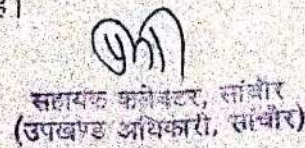 है।
सहायक कलेक्टर, सांचौर
(उपखण्ड अधिकारी, सांचौर)